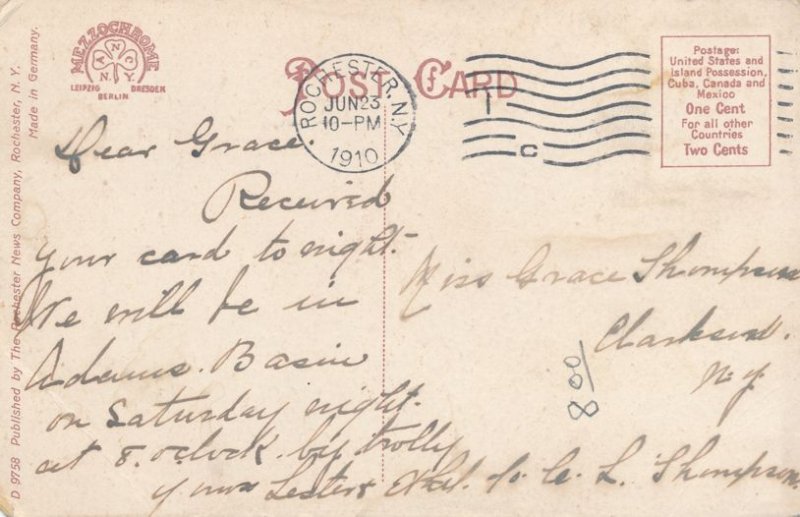 MEZZOCHROME
A N C
N.Y.
LEIPZIG DRESDEN
BERLIN
POST CARD
ROCHESTER, N.Y.
JUN 23
10-PM
1910
T
C
Postage:
United States and
Island Possession,
Cuba, Canada and
Mexico
One Cent
For all other
Countries
Two Cents
D 9758 Published by The Rochester News Company, Rochester, N. Y.
Made in Germany.
Dear Grace.
Received
your card to night.
We will be in
Adams. Basin
on Saturday night.
at 8. o'clock. by trolly
your Lester
Miss Grace Thompson
Clarkson.
N.Y.
800
C. L. Thompson.